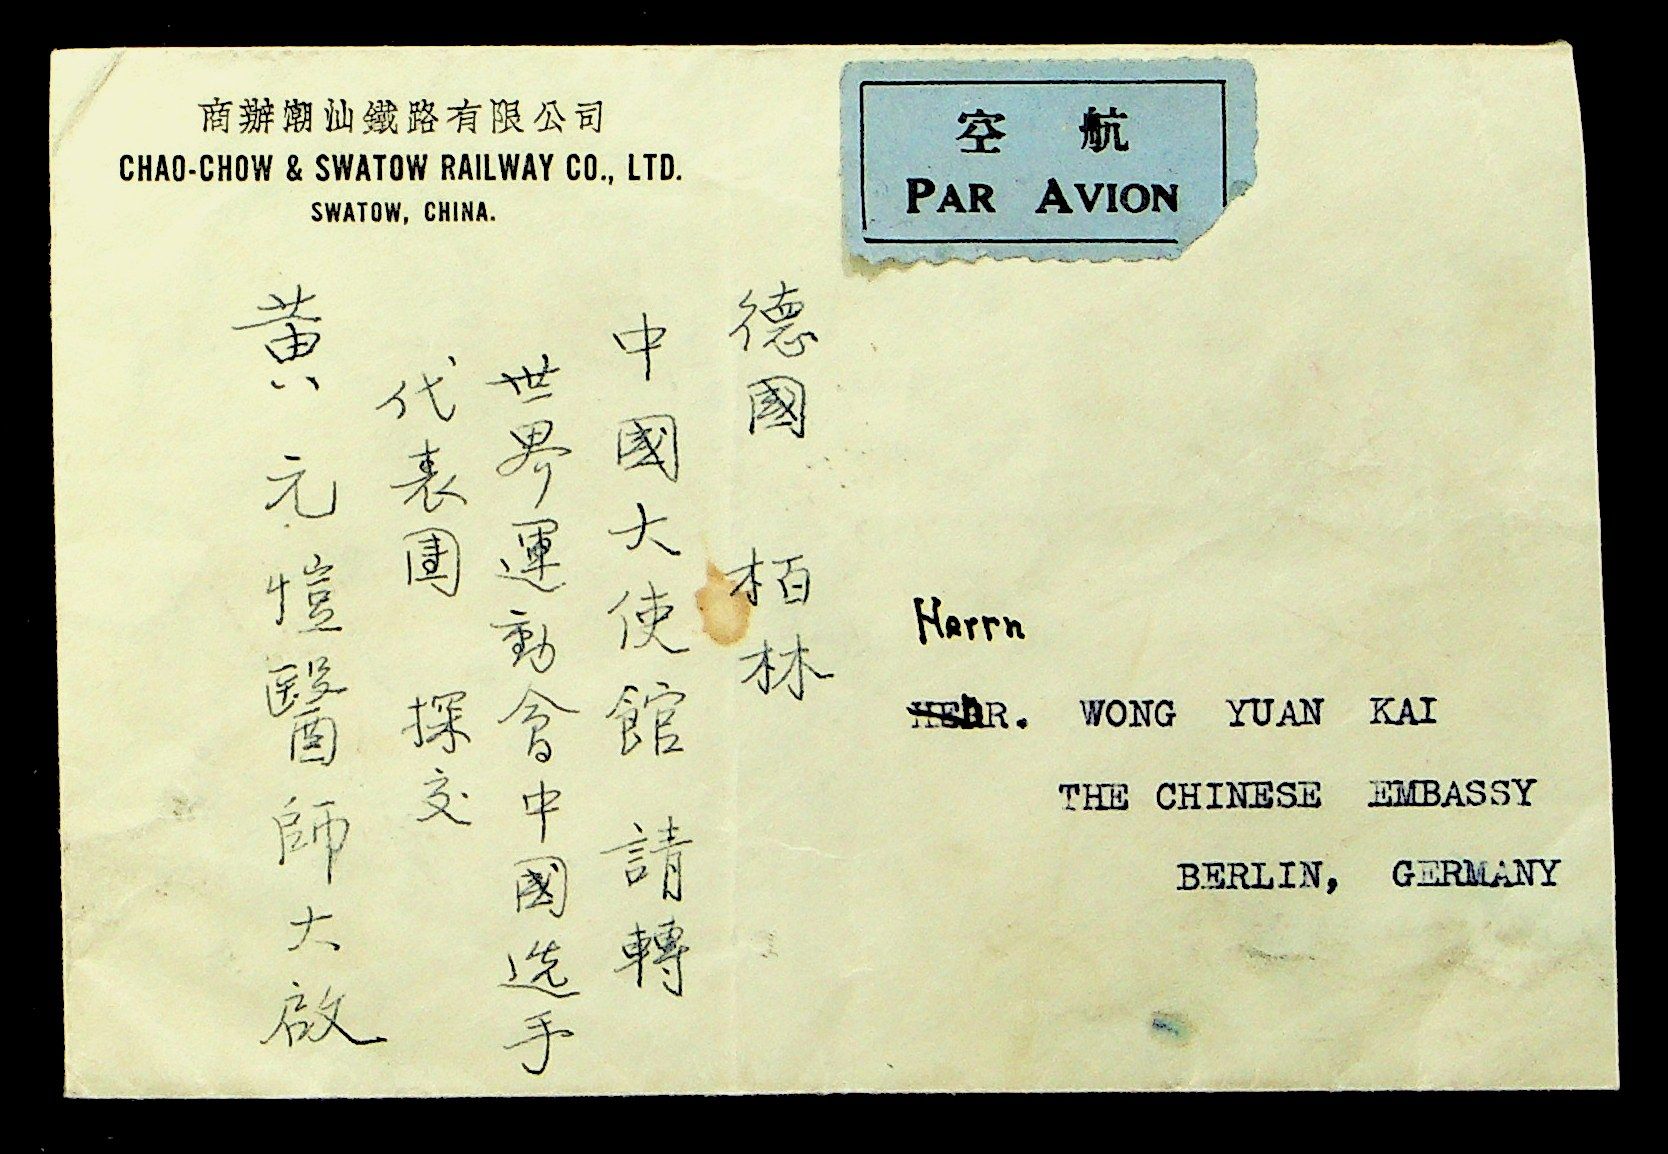 商辦潮汕鐵路有限公司
CHAO-CHOW & SWATOW RAILWAY CO., LTD.
SWATOW, CHINA.
空航
PAR AVION
德國 栢林
中國大使館 請轉
世界運動會中國选手
代表團 探交
黃元愷醫師大啟
Herrn
HERR. WONG YUAN KAI
THE CHINESE EMBASSY
BERLIN, GERMANY